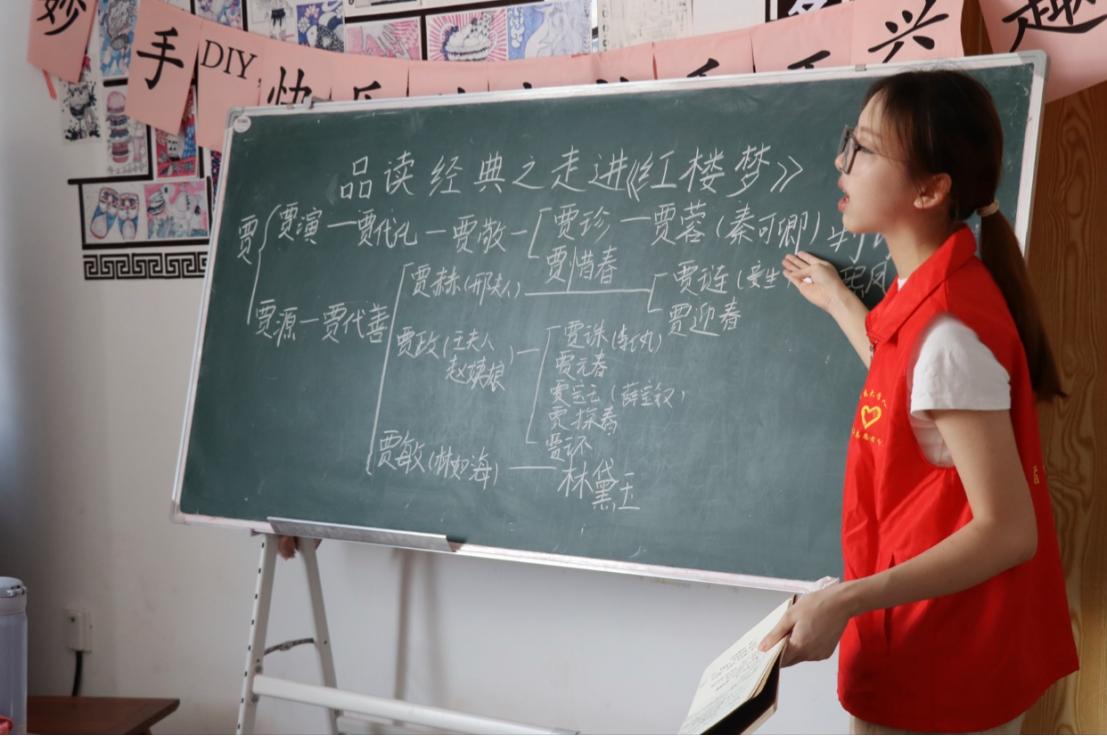 妙手
DIY
快乐
兴趣
品读经典之走进《红楼梦》
贾
贾演一贾代化一贾敬一
贾珍一贾蓉(秦可卿)
贾惜春
贾源一贾代善
贾赦(邢夫人)
贾琏(
贾迎春
贾政(王夫人
赵姨娘)
贾珠(李纨)
贾元春
贾宝玉(薛宝钗)
贾探春
贾环
贾敏(林如海)
林黛玉